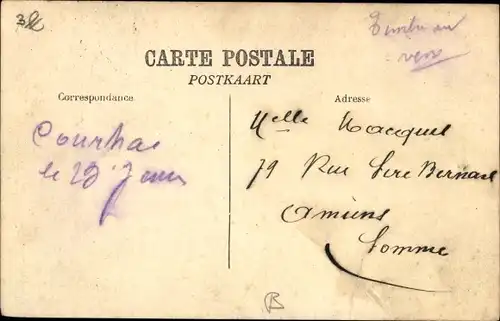 38
Timbre au
verso
CARTE POSTALE
POSTKAART
Correspondance
Adresse
Courtrai
le 23 Juin
Melle Macquet
79 Rue Bernard
Amiens
Somme
B